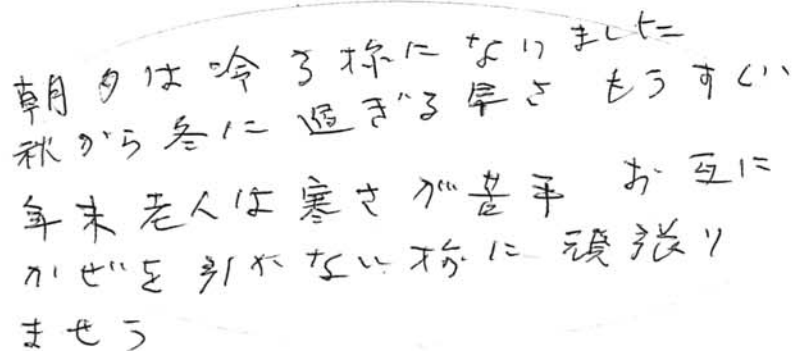 朝夕は冷る様になりました
秋から冬に過ぎる早さ もうすぐ
年末老人は寒さが苦手 お互に
かぜを引かない様に頑張り
ませう